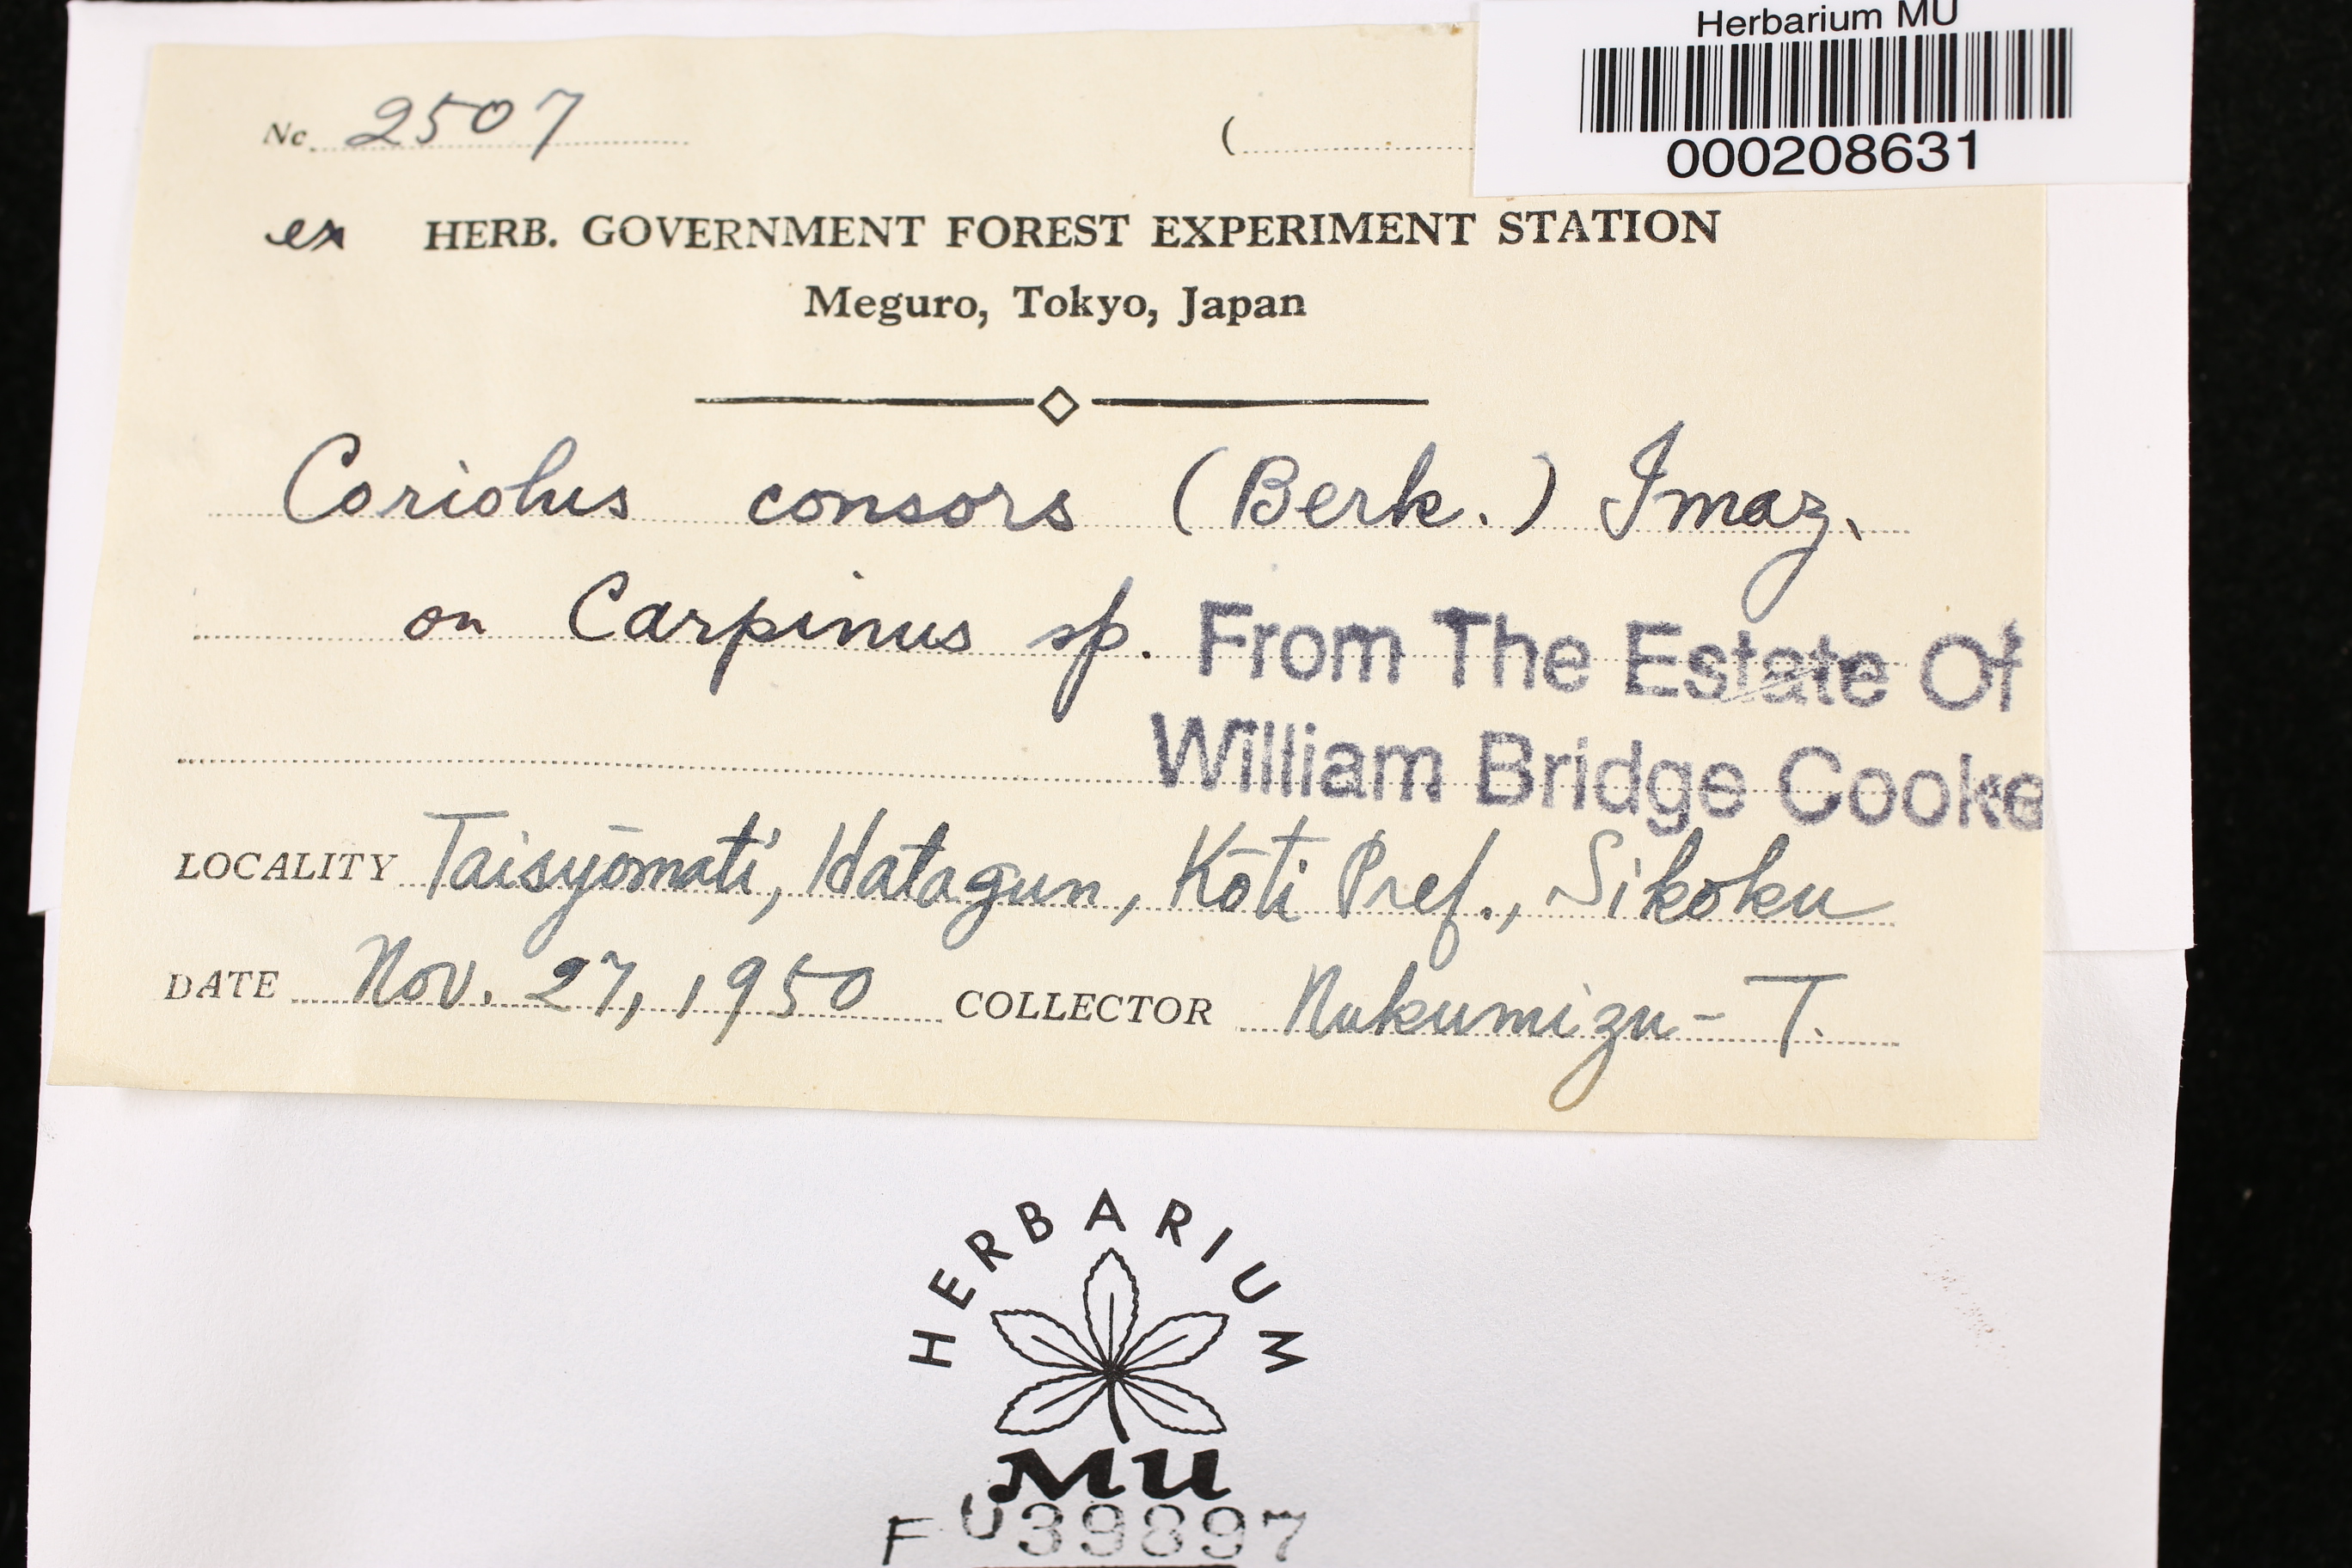 Herbarium MU
000208631
No. 2507 (
ex HERB. GOVERNMENT FOREST EXPERIMENT STATION
Meguro, Tokyo, Japan
Coriolus consors (Berk.) Imaz.
on Carpinus sp.
From The Estate Of
William Bridge Cooke
LOCALITY Taisyōmati, Hatagun, Kōti Pref., Sikoku
DATE Nov. 27, 1950 COLLECTOR Nukumizu-T.
HERBARIUM
MU
FU39897